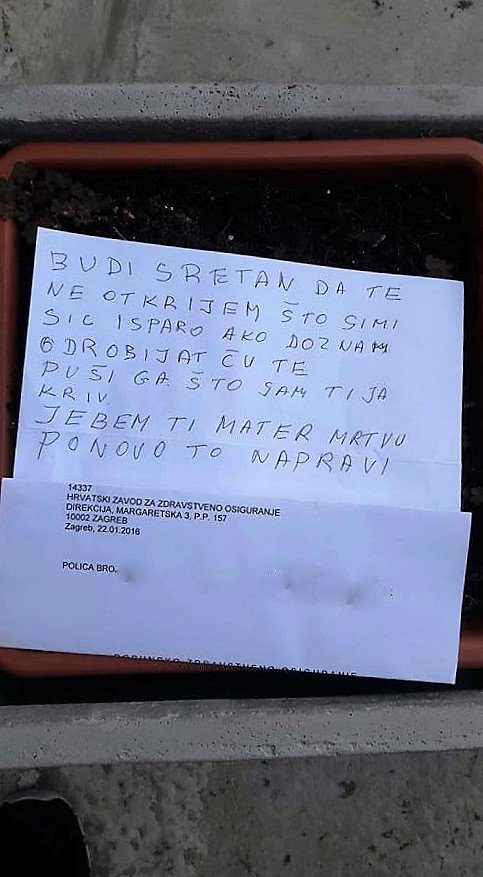 BUDI SRETAN DA TE
NE OTKRIJEM ŠTO SIMI
SIC ISPARO AKO DOZNAM
ODROBIJAT ĆU TE
PUŠI GA ŠTO SAM TI JA
KRIV.
JEBEM TI MATER MRTVU
PONOVO TO NAPRAVI
14337
HRVATSKI ZAVOD ZA ZDRAVSTVENO OSIGURANJE
DIREKCIJA, MARGARETSKA 3, P.P. 157
10002 ZAGREB
Zagreb, 22.01.2016
POLICA BRO.
DOPUNSKO ZDRAVSTVENO OSIGURANJE